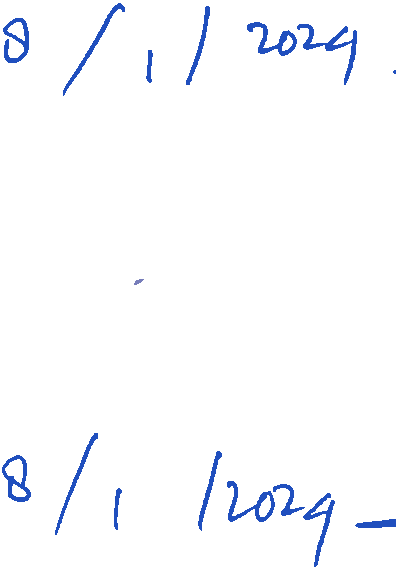 8/1/2024.
8/1/2024-